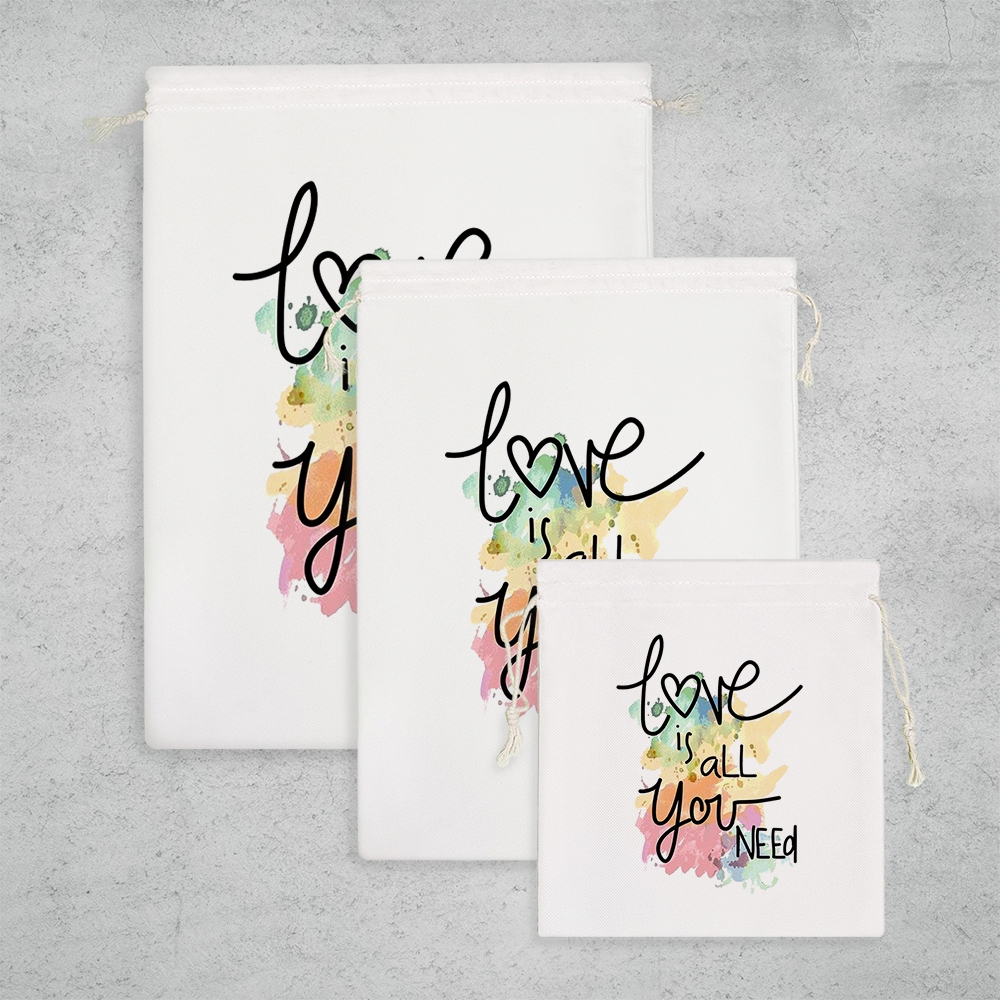 love
i
y
love
is
all
y
love
is
aLL
you
NEEd